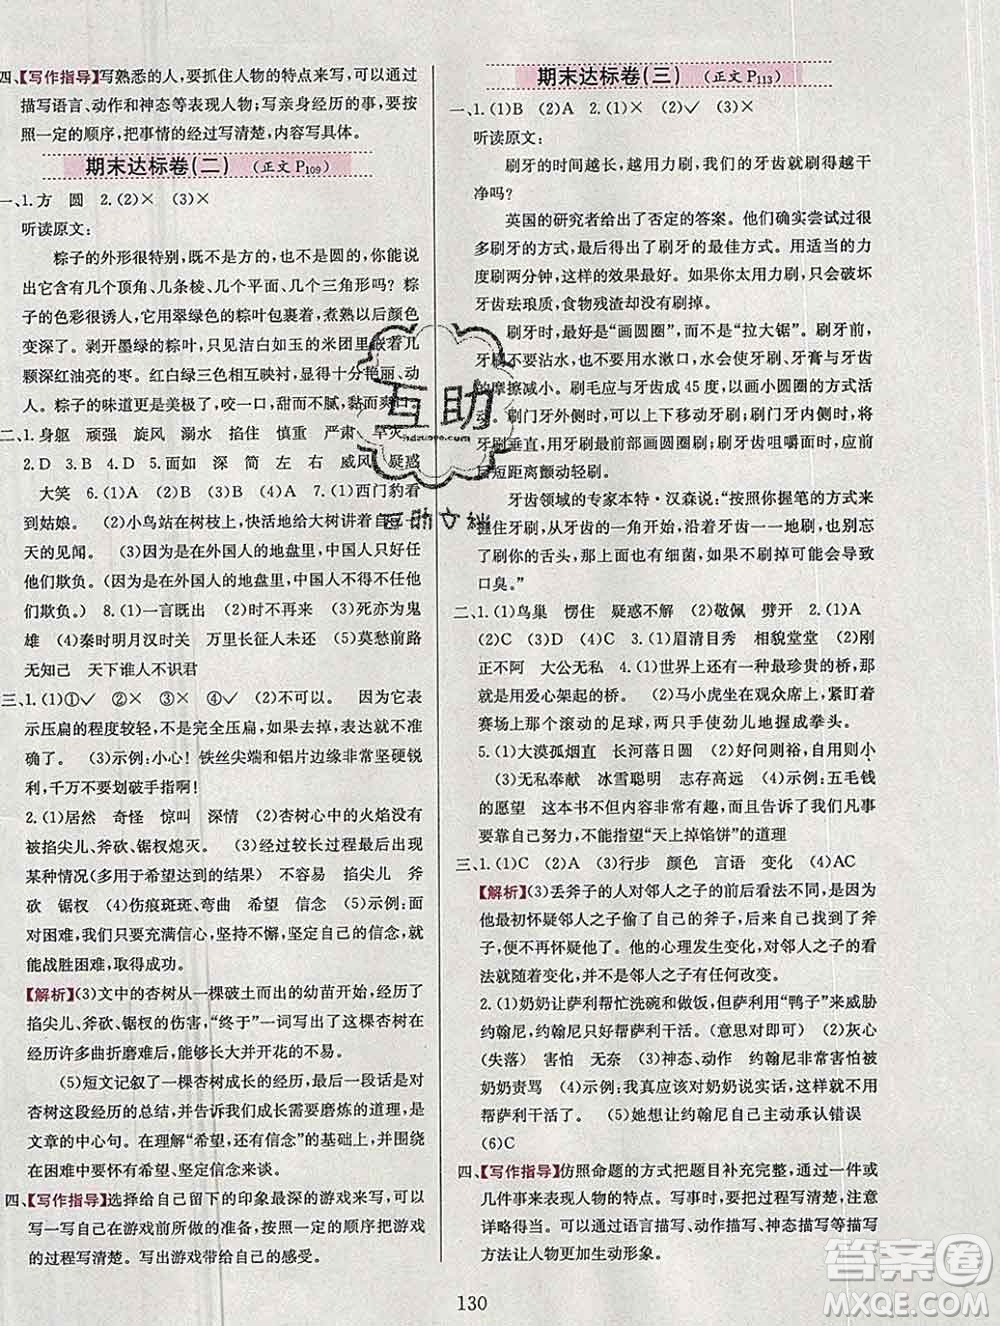 四、【写作指导】写熟悉的人,要抓住人物的特点来写,可以通过
描写语言、动作和神态等表现人物;写亲身经历的事,要按
照一定的顺序,把事情的经过写清楚、内容写具体。
期末达标卷(二) (正文 P109)
一、1.方 圆 2.(2)× (3)×
听读原文:
粽子的外形很特别,既不是方的,也不是圆的,你能说
出它有几个顶角、几条棱、几个平面、几个三角形吗?粽
子的色彩很诱人,它用翠绿色的粽叶包裹着,煮熟以后颜色
变深了。剥开墨绿的粽叶,只见洁白如玉的米团里嵌着几
颗深红油亮的枣。红白绿三色相互映衬,十分悦目。
粽子的味道更是美极了,咬一口,甜而不腻,黏而爽口。
二、1.身躯 顽强 旋风 溺水 掐住 慎重 严肃 旱灾
2.D 3.B 4.D 5.面如 深 简 左 右 威风 疑惑
大笑 6.(1)A (2)C (3)B (4)A 7.(1)西门豹看
到姑娘。 (2)小鸟站在树枝上,快活地给大树讲着自己一
天的见闻。 (3)因为是在外国人的地盘里,中国人只好任
他们欺负。(因为是在外国人的地盘里,中国人只好任他
们欺负。) 8.(1)一言既出 (2)时不再来 (3)死亦为鬼
雄 (4)秦时明月汉时关 万里长征人未还 (5)莫愁前路
无知己 天下谁人不识君
三、1.(1)①✓ ②× ③× ④✓ (2)不可以。 因为它表
示压扁的程度较轻,不是完全压扁,如果去掉,表达就不
正确了。 (3)示例:小心! 铁丝尖端和铝片边缘非常坚硬锐
利,千万不要划破手指啊!
2.(1)居然 奇怪 惊叫 深情 (2)杏树心中的火焰没有
被掐尖儿、斧砍、锯杈熄灭。 (3)经过较长过程最后出现
某种情况(多用于希望达到的结果) 不能 掐尖儿 斧
砍 锯杈 (4)伤痕斑斑、弯曲 希望 信念 (5)示例:面
对困难,我们只要充满信心,坚持不懈,坚定自己的信念,就
能战胜困难,取得成功。
【解析】(3)文中的杏树从一棵破土而出的幼苗开始,经历了
掐尖儿、斧砍、锯杈的伤害,“终于”一词写出了这棵杏树在
经历许多曲折磨难后,能够长大并开花的不易。
(5)短文记叙了一棵杏树成长的经历,最后一段话是对
杏树经历的总结,并告诉我们成长需要磨炼的道理,是
文章的中心句。在理解“希望,还有信念”的基础上,并结合
坚守希望、坚定信念来谈。
四、【写作指导】选择给自己留下的印象最深的游戏来写,可以
写一写自己在游戏前所做的准备,按照一定的顺序,把游戏
的过程写清楚。写出游戏带给自己的感受。
期末达标卷(三) (正文 P113)
一、1.(1)B (2)A 2.(1)× (2)✓ (3)×
听读原文:
刷牙的时间越长,越用力刷,我们的牙齿就能刷得越干
净吗?
英国的研究者给出了否定的答案。他们确实尝试过很
多刷牙的方式,最后得出了刷牙的最佳方式。用适当的力
度刷两分钟,这样的效果最好。如果你太用力刷,可能破坏
牙齿珐琅质,食物残渣却没有刷掉。
刷牙时,最好是“画圆圈”,而不是“拉大锯”。刷牙前,
牙刷不要沾水,也不要先用水漱口,以免牙膏与牙齿之间
的摩擦减小。刷毛应与牙齿成 45 度,以画小圆圈的方式活
动。刷门牙外侧时,可以上下移动牙刷;刷门牙内侧时,
用牙刷最前部画圆圈刷;刷牙齿咀嚼面时,
短距离颤动轻刷。
牙齿领域的专家本特·汉森说:“按照你握笔的方式来
握住牙刷,从牙齿的一角开始,沿着牙齿一一地刷,也别忘
了刷你的舌头,那里也有细菌,如果不刷掉可能会导致
口臭。”
二、1.(1)鸟巢 愣住 疑惑不解 (2)敬佩 劈开 2.(1)A
(2)C (3)D (4)B 3.(1)眉清目秀 相貌堂堂 (2)刚
正不阿 大公无私 4.(1)世界上还有一种最珍贵的桥,是
用爱心架起的桥。 (2)马小虎坐在观众席上,紧盯着
赛场上那个滚动的足球,两只手使劲儿地握成拳头。
5.(1)大漠孤烟直 长河落日圆 (2)好问则裕,自用则小
(3)无私奉献 冰雪聪明 志存高远 (4)示例:五毛钱
的愿望 这本书不但内容非常有趣,而且告诉了我们凡事
要靠自己的努力,不能指望“天上掉馅饼”的道理
三、1.(1)C (2)A (3)行步 颜色 言语 变化 (4)AC
【解析】(3)丢斧子的人对邻人之子的前后看法不同,是因为
他最初怀疑邻人之子偷了自己的斧子,后来他找到了斧
子,便不再怀疑他了。他的心理发生变化,对邻人之子的看
法就随着变化,并不是邻人之子有任何改变。
2.(1)奶奶让萨利帮忙洗碗和做饭,但萨利用“鸭子”来威胁
约翰尼,约翰尼只好帮萨利干活。(意思对即可) (2)灰心
(失落) 害怕 无奈 (3)神态、动作 约翰尼非常害怕被
奶奶责骂 (4)示例:我真应该对奶奶说实话,这样就不用
帮萨利干活了。 (5)她想让约翰尼主动承认错误
(6)C
四、【写作指导】仿照命题的方式把题目补充完整,通过一件或
几件事来表现人物的特点。写事时,要把事情写清楚,注意
详略得当。可以通过语言描写、动作描写、神态描写等描写
方法让人物更加生动形象。
130
互助
互助文档
答案圈
MXQE.COM